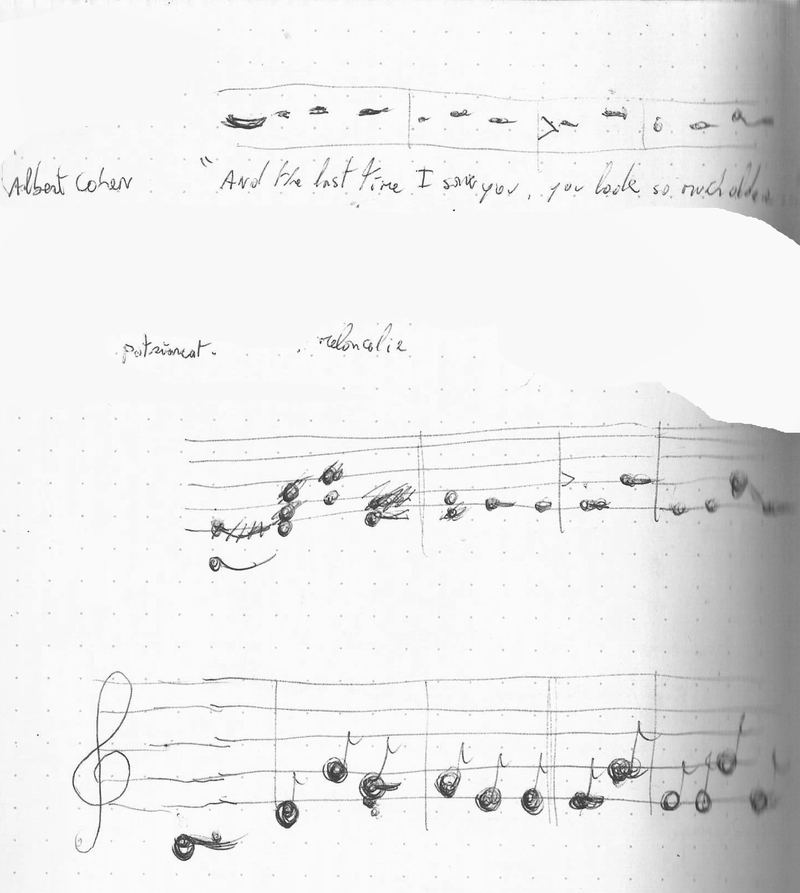 Albert Cohen " And the last time I saw you, you look so much older
melancolie